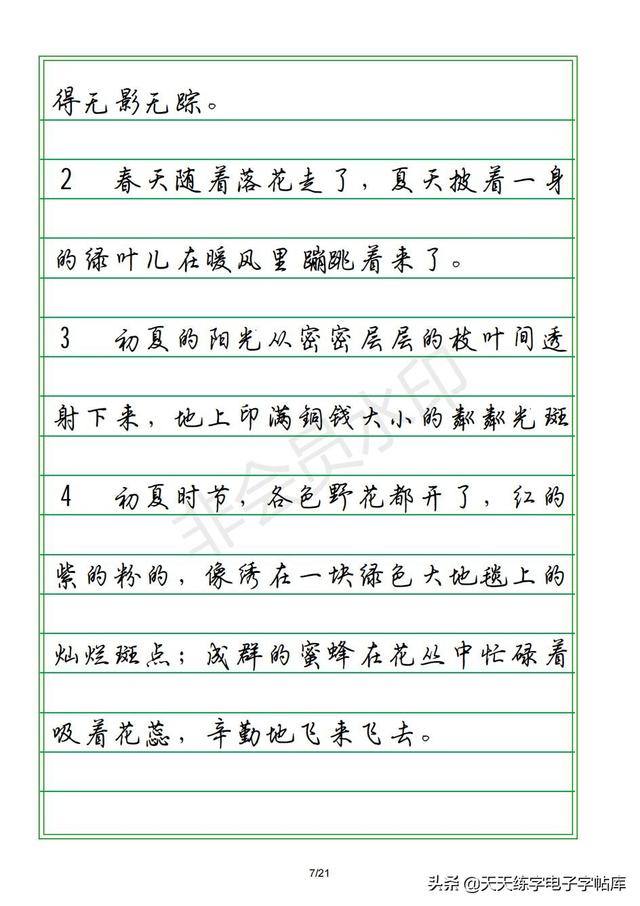 得无影无踪。
2 春天随着落花走了，夏天披着一身
的绿叶儿在暖风里蹦跳着来了。
3 初夏的阳光从密密层层的枝叶间透
射下来，地上印满铜钱大小的粼粼光斑
4 初夏时节，各色野花都开了，红的
紫的粉的，像绣在一块绿色大地毯上的
灿烂斑点；成群的蜜蜂在花丛中忙碌着
吸着花蕊，辛勤地飞来飞去。
非会员水印
7/21
头条 @天天练字电子字帖库